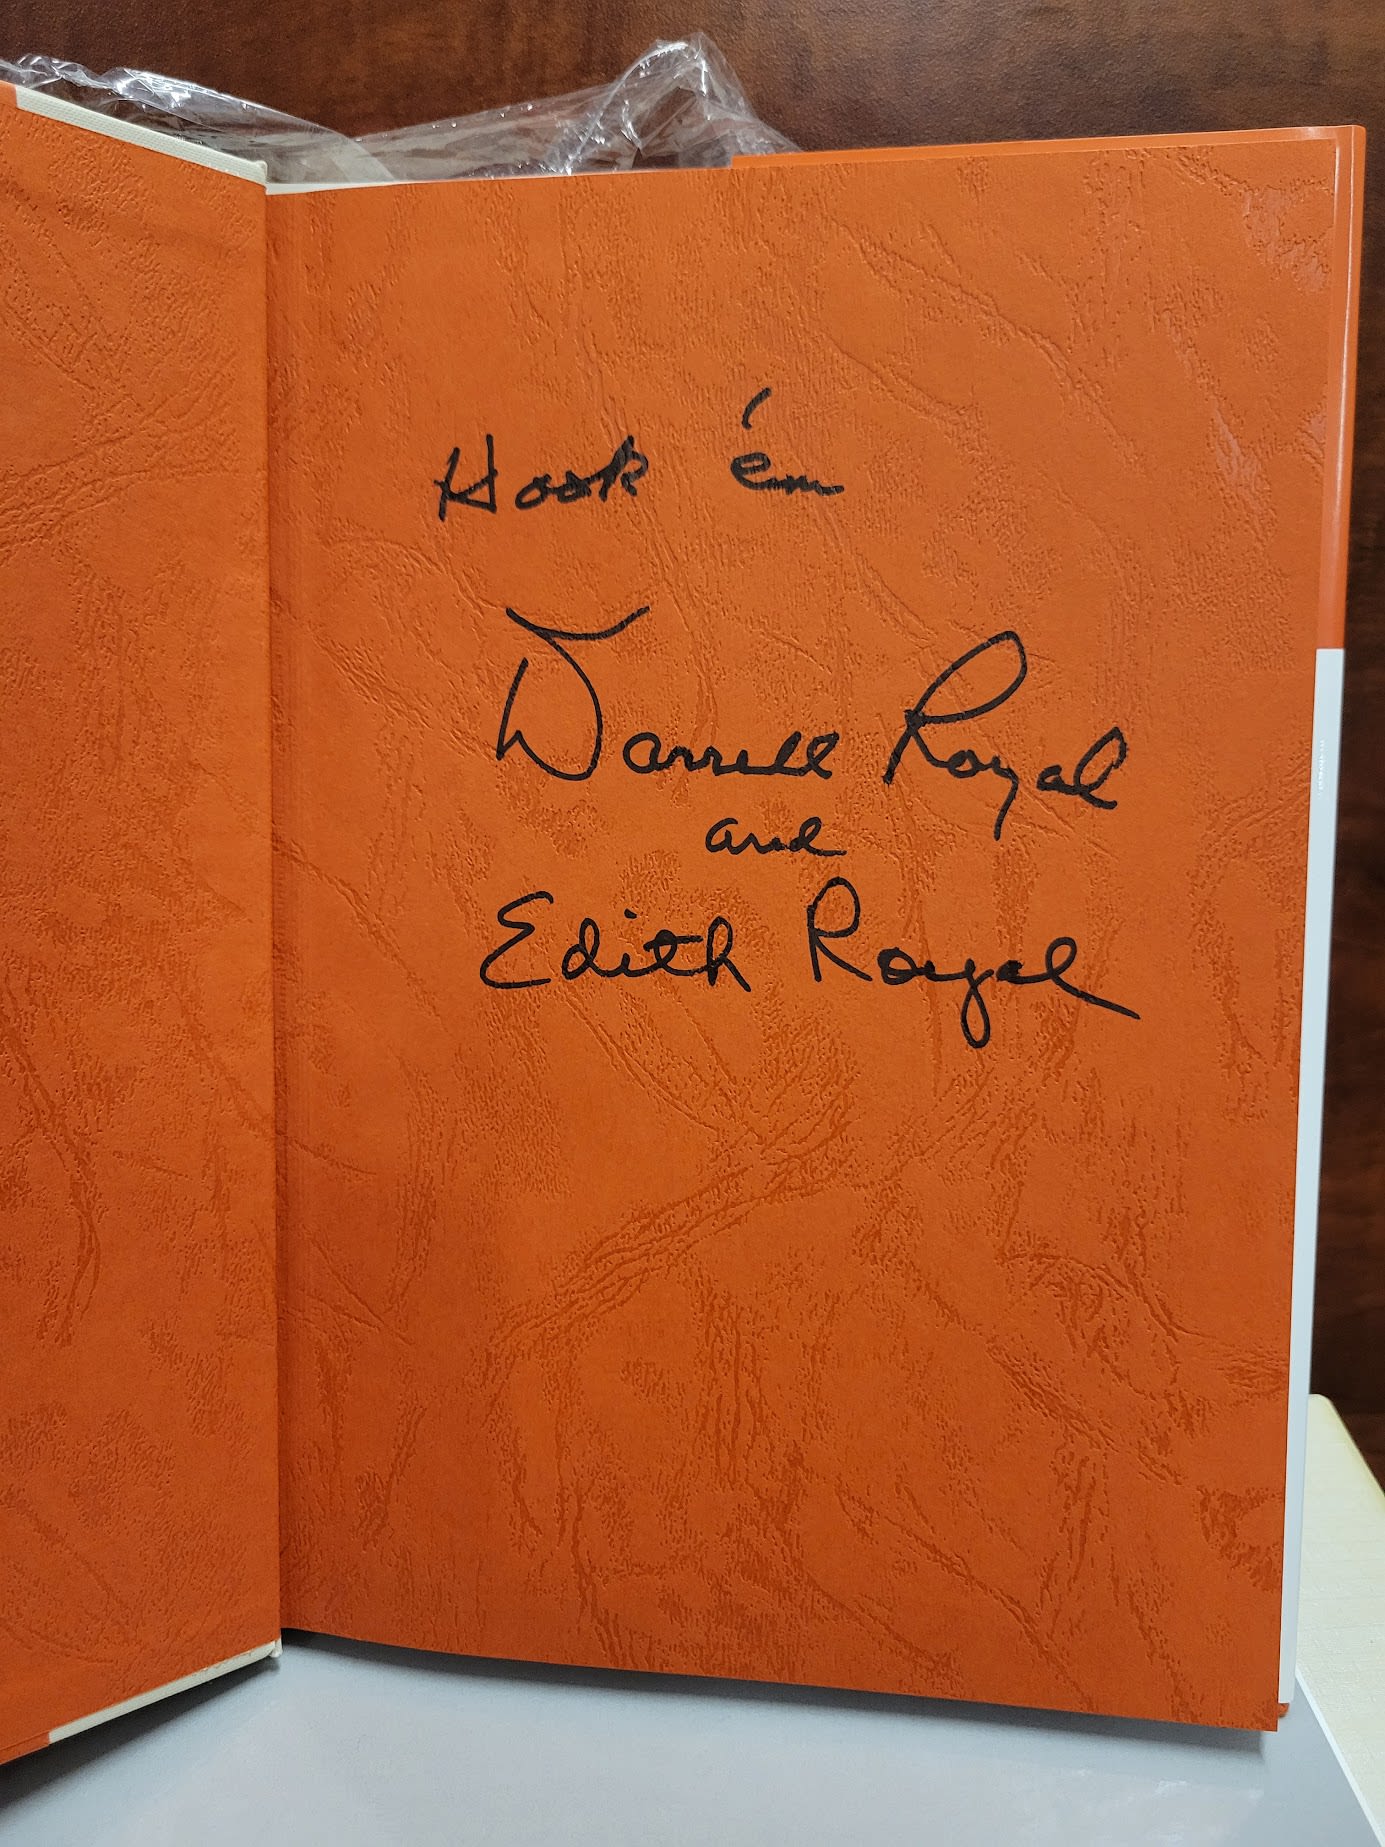 Hook 'em
Darrell Royal
and
Edith Royal